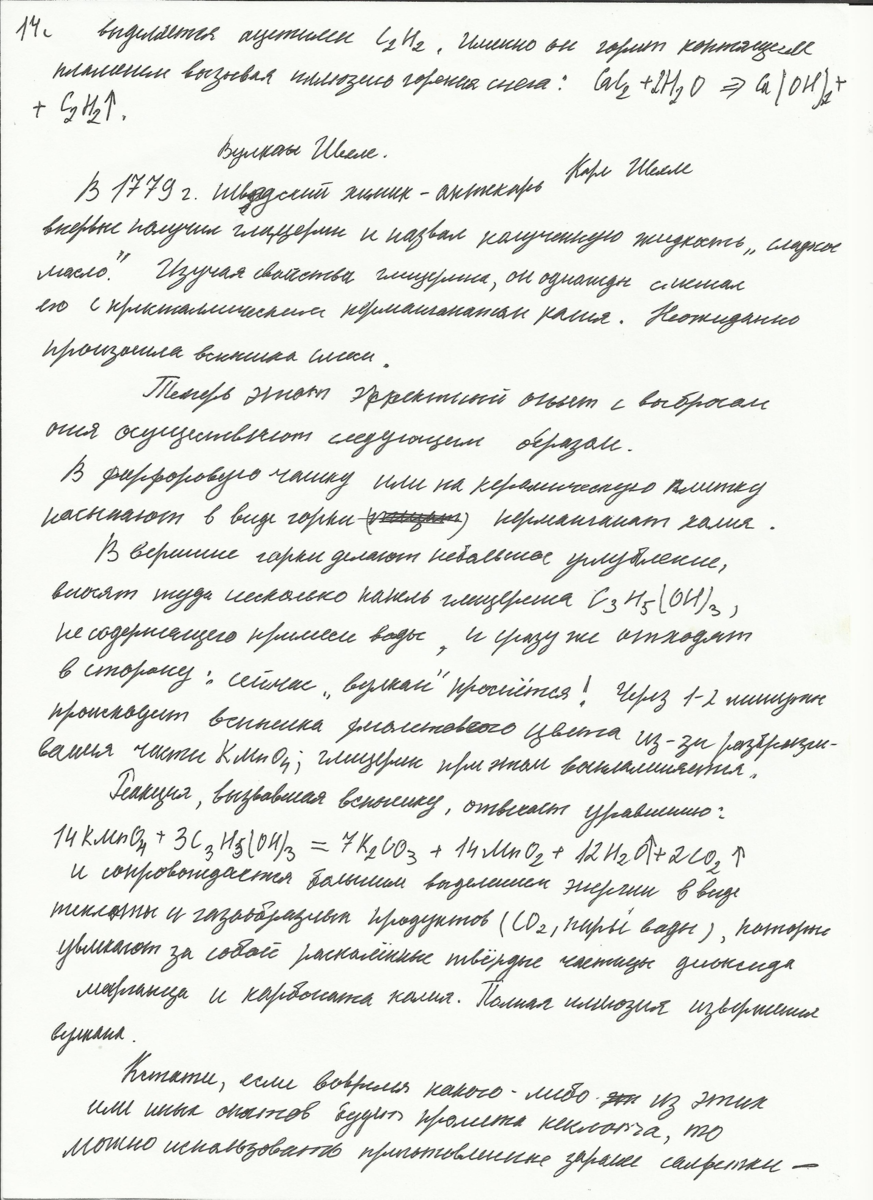 14. выделяется ацетилен C2H2. Именно он горит коптящем
пламенем вызывая иллюзию горения снега: CaC2 + 2H2O ⇒ Ca(OH)2 +
+ C2H2↑.
Вулкан Шееле.
В 1779 г. шведский химик-аптекарь Карл Шееле
впервые получил глицерин и назвал полученную жидкость „сладкое
масло." Изучая свойства глицерина, он однажды смешал
его с кристаллическим перманганатом калия. Неожиданно
произошла вспышка смеси.
Теперь этот эффектный опыт с выбросом
огня осуществляют следующем образом.
В фарфоровую чашку или на керамическую плитку
насыпают в виде горки перманганат калия.
В вершине горки делают небольшое углубление,
вносят туда несколько капель глицерина C3H5(OH)3,
не содержащего примеси воды, и сразу же отходят
в сторону: сейчас „вулкан" проснётся! Через 1-2 минуты
происходит вспышка фиолетового цвета из-за разбрызги-
вания части KMnO4; глицерин при этом воспламеняется.
Реакция, вызвавшая вспышку, отвечает уравнению:
14KMnO4 + 3C3H5(OH)3 = 7K2CO3 + 14MnO2 + 12H2O↑ + 2CO2↑
и сопровождается большим выделением энергии в виде
теплоты и газообразных продуктов (CO2, пары воды), которые
увлекают за собой раскалённые твёрдые частицы диоксида
марганца и карбоната калия. Полная иллюзия извержения
вулкана.
Кстати, если вовремя какого-либо из этих
или иных опытов будет пролита кислота, то
можно использовать приготовленные заране салфетки —